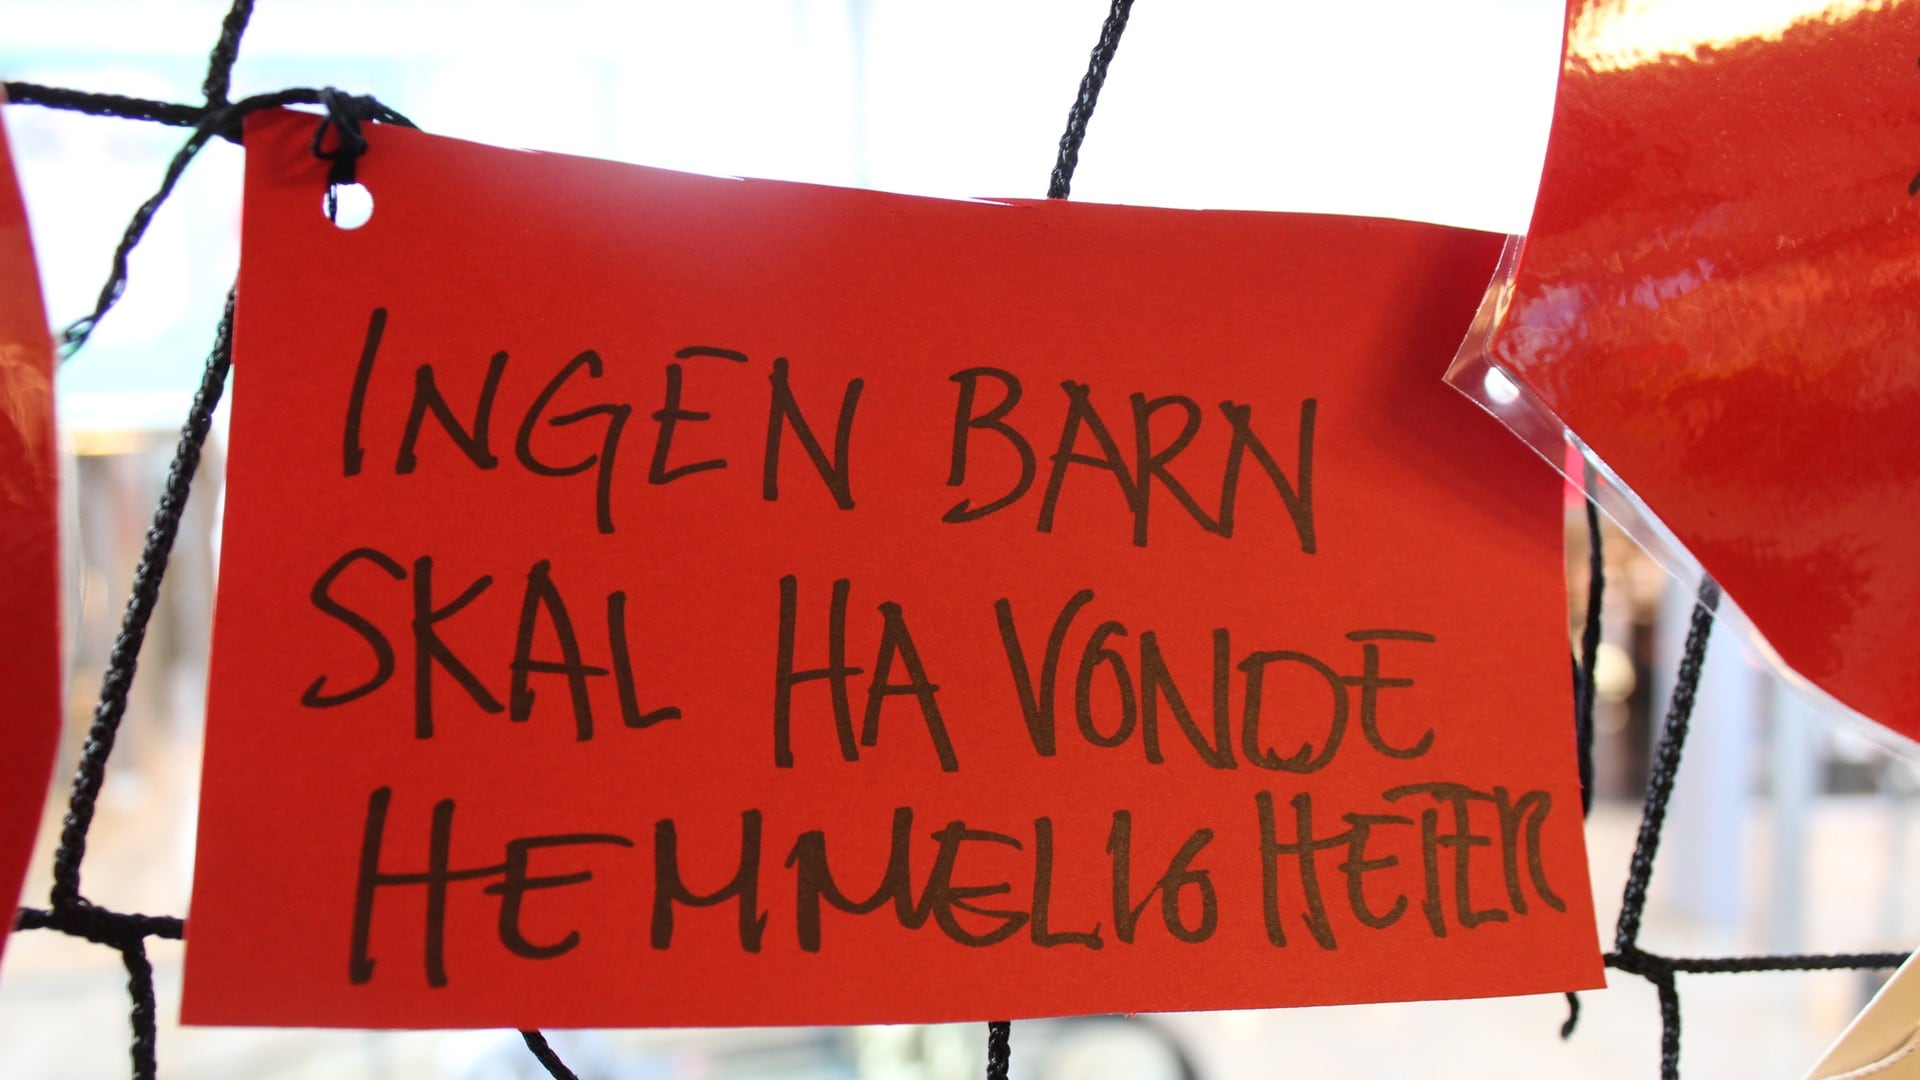 INGEN BARN
SKAL HA VONDE
HEMMELIG HETER